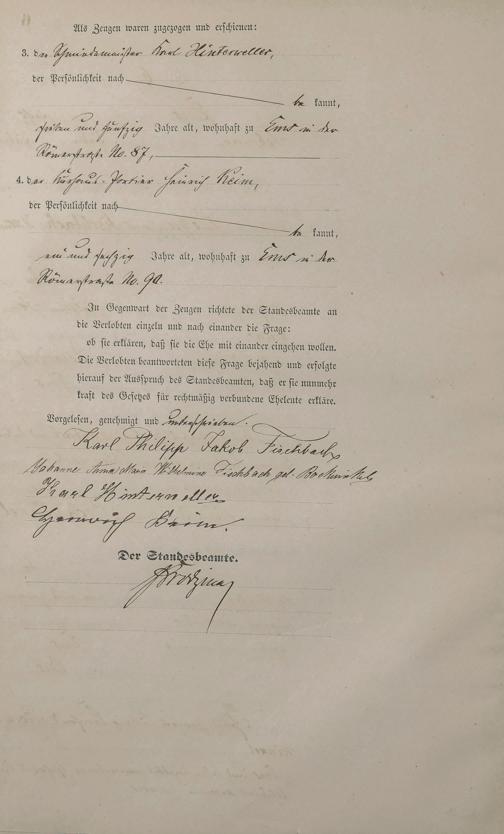 Als Zeugen waren zugezogen und erschienen:
3. der Schmiedemeister Karl Hinterweller,
der Persönlichkeit nach
be kannt,
sieben und fünfzig Jahre alt, wohnhaft zu Ems in der
Römerstraße No. 87,
4. der Kurhaus-Portier Heinrich Keim,
der Persönlichkeit nach
be kannt,
ein und sechzig Jahre alt, wohnhaft zu Ems in der
Römerstraße No. 90.
In Gegenwart der Zeugen richtete der Standesbeamte an
die Verlobten einzeln und nach einander die Frage:
ob sie erklären, daß sie die Ehe mit einander eingehen wollen.
Die Verlobten beantworteten diese Frage bejahend und erfolgte
hierauf der Ausspruch des Standesbeamten, daß er sie nunmehr
kraft des Gesetzes für rechtmäßig verbundene Eheleute erkläre.
Vorgelesen, genehmigt und unterschrieben.
Karl Philipp Jakob Fischbach
Anna Maria Wilhelmine Fischbach geb.
Karl Hinterweller
Heinrich Keim.
Der Standesbeamte.